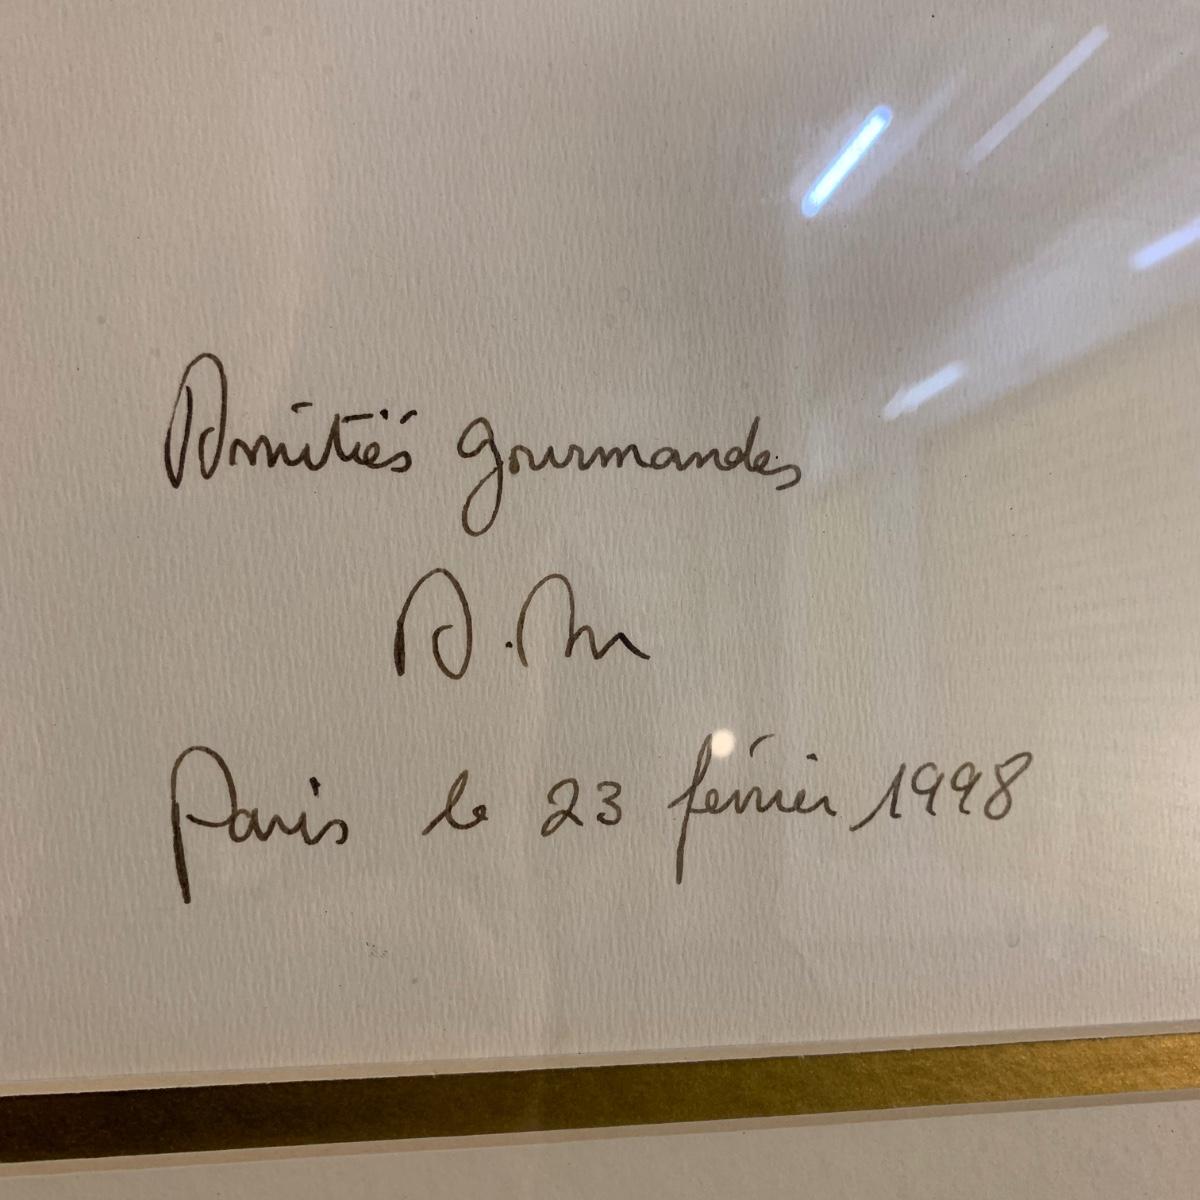 Amitiés gourmandes
Paris le 23 février 1998